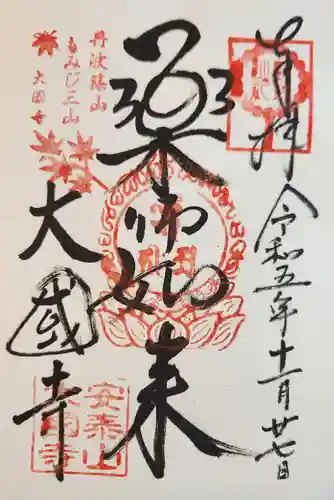 奉拝
令和五年十一月廿七日
薬師如来
大國寺
丹波篠山
もみじ三山
大国寺
安泰山
大國寺